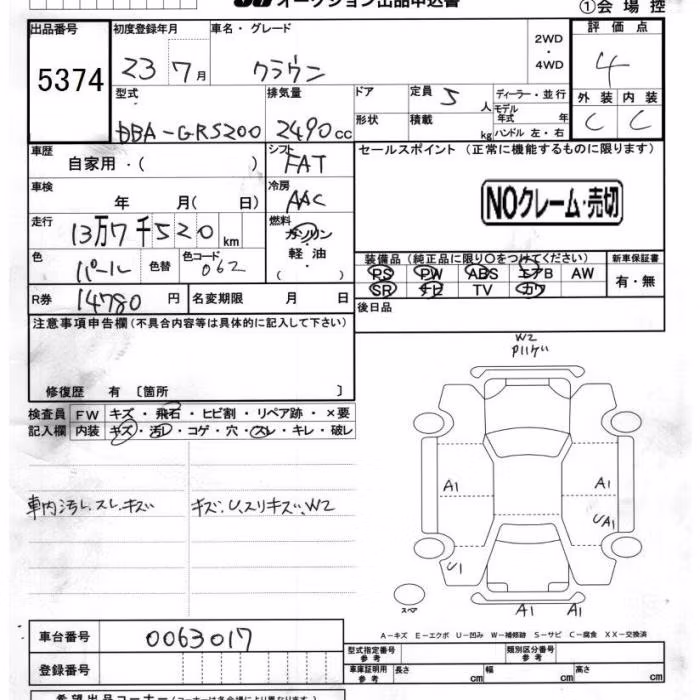 オークション出品申込書
①会場控
出品番号 初度登録年月 車名・グレード 2WD ・ 4WD 評価点
5374 23 7月 クラウン 4
型式 排気量 ドア 定員 5人 ディーラー・並行 外装 内装
モデル年式 年
DBA-GRS200 2490cc 形状 積載 kg ハンドル 左・右 C C
車歴 シフト セールスポイント (正常に機能するものに限ります)
自家用・( ) FAT
車検 冷房 NOクレーム・売切
年 月( 日) AAC
走行 燃料
13万7千520km ガソリン・軽油・( )
色 色替 色コード 装備品(純正品に限り○をつけてください) 新車保証書
パール 062 PS PW ABS エアB AW 有・無
SR ナビ TV カワ
R券 14780円 名変期限 月 日
後日品
注意事項申告欄(不具合内容等は具体的に記入して下さい)
W2
修復歴 有 〔箇所 〕
検査員記入欄 FW キズ・飛石・ヒビ割・リペア跡・×要
内装 キズ・汚レ・コゲ・穴・スレ・キレ・破レ
車内汚レ.スレ.キズ キズ.U.スリキズ.W2
A1 A1
UA1
U1
スペア A1 A1
車台番号 0063017
A-キズ E-エクボ U-凹み W-補修跡 S-サビ C-腐食 XX-交換済
登録番号
型式指定番号 参考 類別区分番号 参考
車庫証明用 参考 長さ cm 幅 cm 高さ cm
希望出品コーナー(コーナーは各会場により異なります)